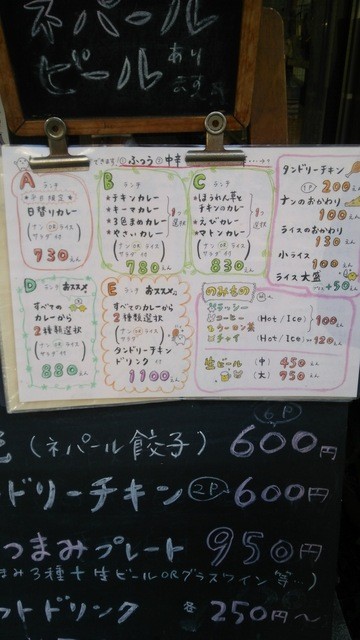 ネパール
ビール あり
ます
できます! ① ふつう ② 中辛
A ランチ
平日限定
日替りカレー
(ナン OR ライス
サラダ 付)
730えん
B ランチ
• チキンカレー
• キーマカレー
• 3色まめカレー
• やさいカレー
1つ選択
(ナン OR ライス
サラダ 付)
780えん
C ランチ
• ほうれん草と
チキンのカレー
• えびカレー
• マトンカレー
1つ選択
(ナン OR ライス
サラダ 付)
830えん
タンドリーチキン
1P 200えん
ナンのおかわり
100えん
ライスのおかわり
130えん
小ライス
100えん
ライス大盛
プラス+50えん
D ランチ おススメ
すべての
カレーから
2種類選択
(ナン OR ライス
サラダ 付)
880えん
E ランチ おススメ
すべてのカレーから
2種類選択
(ナン OR ライス
サラダ 付)
タンドリーチキン
ドリンク 付
1100えん
のみもの
ラッシー
コーヒー (Hot / Ice)
ウーロン茶
100えん
チャイ (Hot / Ice) 120えん
生ビール (中) 450えん
(大) 750えん
6P
(ネパール餃子) 600円
ドリーチキン 2P 600円
つまみプレート 950円
まみ3種 + 生ビール OR グラスワイン 等…)
フトドリンク 各 250円〜